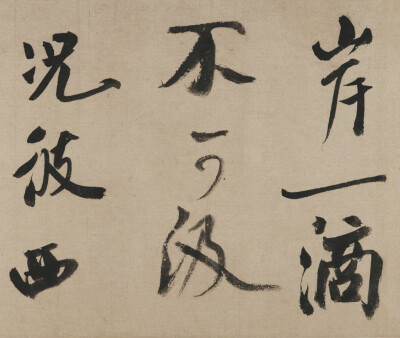 岸一滴
不可汲
況彼西